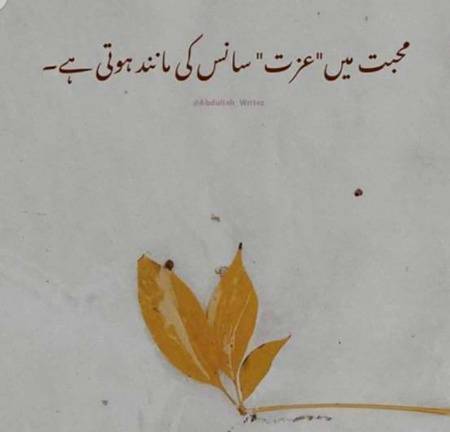 محبت میں "عزت" سانس کی مانند ہوتی ہے۔
@Abdullah_Writes